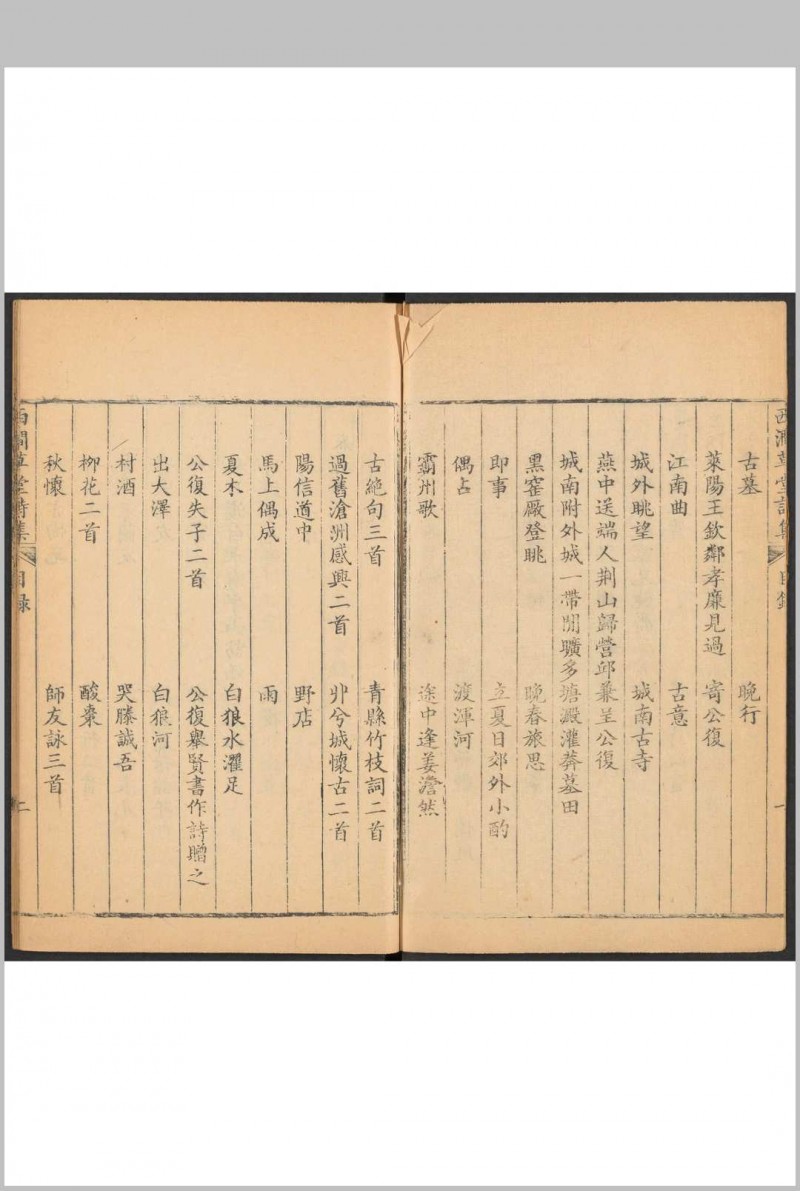 西澗草堂詩集 目錄 一
古墓 晚行
萊陽王欽鄰孝廉見過 寄公復
江南曲 古意
城外眺望 城南古寺
燕中送端人荆山歸營邱兼呈公復
城南附外城一帶閒曠多塘澱灌莽墓田
黑窑厰登眺 晚春旅思
即事 立夏日郊外小酌
偶占 渡渾河
霸州歌 途中逢姜澹然
古絶句三首 青縣竹枝詞二首
過舊滄洲感興二首 丱兮城懷古二首
陽信道中 野店
馬上偶成 雨
夏木 白狼水濯足
公復失子二首 公復舉賢書作詩贈之
出大澤 白狼河
村酒 哭滕誠吾
柳花二首 酸棗
秋懷 師友詠三首
西澗草堂詩集 目録 二